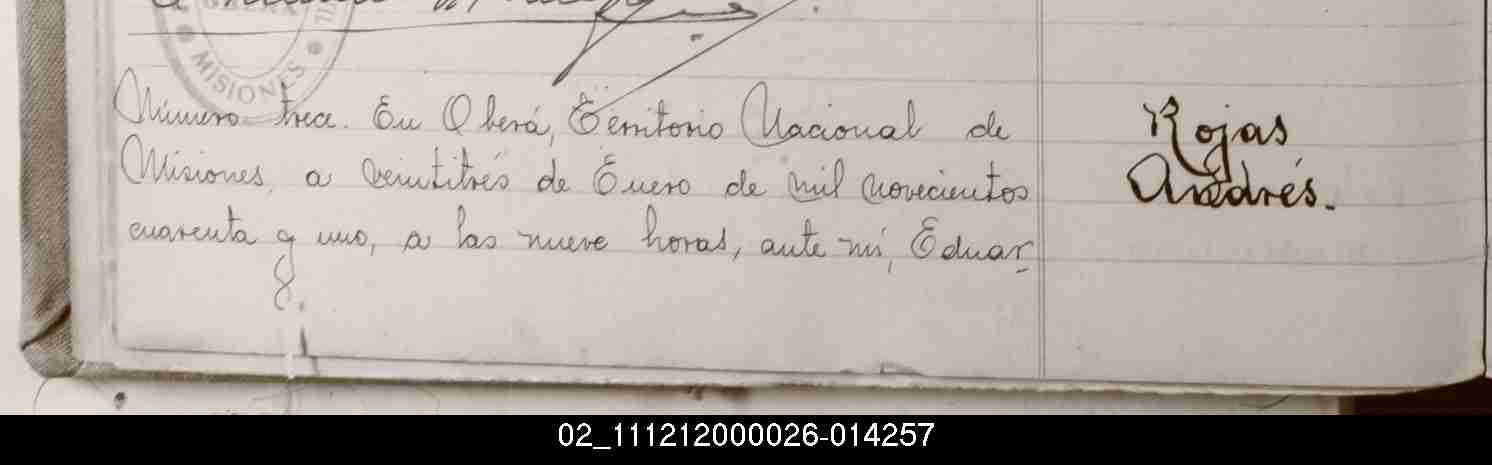 MISIONES
Número trece. En Oberá, Territorio Nacional de
Misiones, a veintitrés de Enero de mil novecientos
cuarenta y uno, a las nueve horas, ante mí, Eduar-
Rojas
Andrés.-
02_111212000026-014257